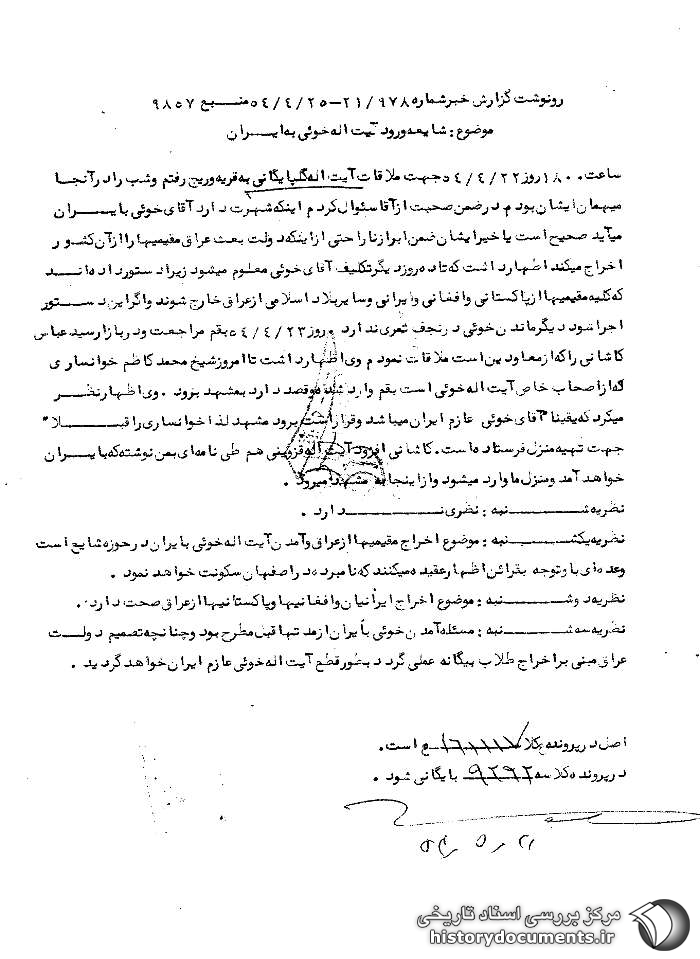 رونوشت گزارش خبر شماره ۲۱/۹۷۸ – ۵۴/۴/۲۵ منبع ۹۸۵۷
موضوع : شایعه ورود آیت اله خوئی به ایران
ساعت ۱۸۰۰ روز ۵۴/۴/۲۲ جهت ملاقات آیت اله گلپایگانی به قریه وریج رفتم و شب را در آنجا
میهمان ایشان بودم در ضمن صحبت از آقا سئوال کردم اینکه شهرت دارد آقای خوئی بایران
میآید صحیح است یا خیر ایشان ضمن ابراز نا راحتی از اینکه دولت بعث عراق مقیمیها را از آن کشور
اخراج میکند اظهار داشت که تا ده روز دیگر تکلیف آقای خوئی معلوم میشود زیرا دستور داده اند
که کلیه مقیمیها از پاکستانی و افغانی و ایرانی و سایر بلاد اسلامی از عراق خارج شوند و اگر این دستور
اجرا شود دیگر ماندن خوئی در نجف ثمری ندارد . روز ۵۴/۴/۲۳ بقم مراجعت و در بازار سید عباس
کاشانی را که از معاودین است ملاقات نمودم وی اظهار داشت تا امروز شیخ محمد کاظم خوانساری
که از اصحاب خاص آیت اله خوئی است بقم وارد شده و قصد دارد بمشهد برود . وی اظهار نظر
میکرد که یقینا" آقای خوئی عازم ایران میباشد و قرار است برود مشهد لذا خوانساری را قبلا"
جهت تهیه منزل فرستاده است . کاشانی افزود آیت اله قزوینی هم طی نامه ای بمن نوشته که بایران
خواهد آمد و منزل ما وارد میشود و از اینجا به مشهد میرود .
نظریه شنبه : نظری ندارد .
نظریه یکشنبه : موضوع اخراج مقیمیها از عراق و آمدن آیت اله خوئی بایران در حوزه شایع است
و عده ای با توجه بقرائن اظهار عقیده میکنند که نامبرده در اصفهان سکونت خواهد نمود .
نظریه دوشنبه : موضوع اخراج ایرانیان و افغانیها و پاکستانیها از عراق صحت دارد .
نظریه سه شنبه : مسئله آمدن خوئی بایران از مدتها قبل مطرح بود و چنانچه تصمیم دولت
عراق مبنی بر اخراج طلاب بیگانه عملی گردد بطور قطع آیت اله خوئی عازم ایران خواهد گردید .
اصل در پرونده بکلا ع است .
در پرونده کلاسه ۹۲۶۲ بایگانی شود .
مرکز بررسی اسناد تاریخی
historydocuments.ir